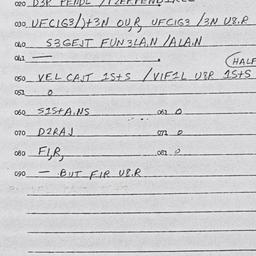 030 UFCIG3/)+3N OUR, UFCIG3 /3N U8.R
040 S3GEJT FUN3LA.N /ALA.N
041 —
(HALF
050 VEL CAJT 1S+S /VIF1L U8R 1S+S
051 0
060 S1S+A.NS 061 0
070 D2RAJ 071 0
080 F1,R, 081 0
090 — BUT FIR U8.R